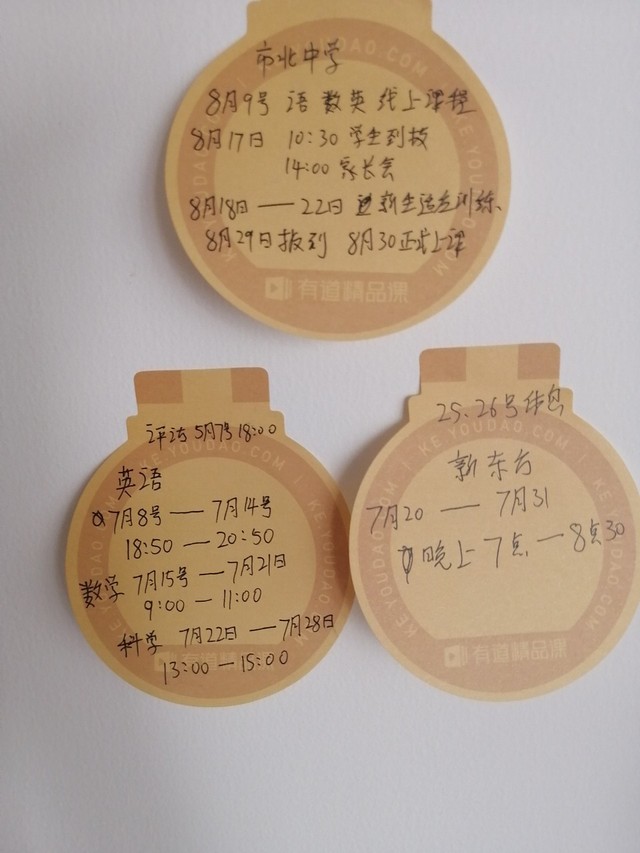 市北中学
8月9号 语数英线上课程
8月17日 10:30 学生到校
14:00 家长会
8月18日——22日 新生适应训练
8月29日报到 8月30正式上课
KE.YOUDAO.COM
有道精品课
评测 5月7号 18:00
英语
7月8号——7月14号
18:50—20:50
数学 7月15号——7月21日
9:00—11:00
科学 7月22日——7月28日
13:00—15:00
KE.YOUDAO.COM
有道精品课
25.26号休息
新东方
7月20——7月31
晚上7点—8点30
KE.YOUDAO.COM
有道精品课